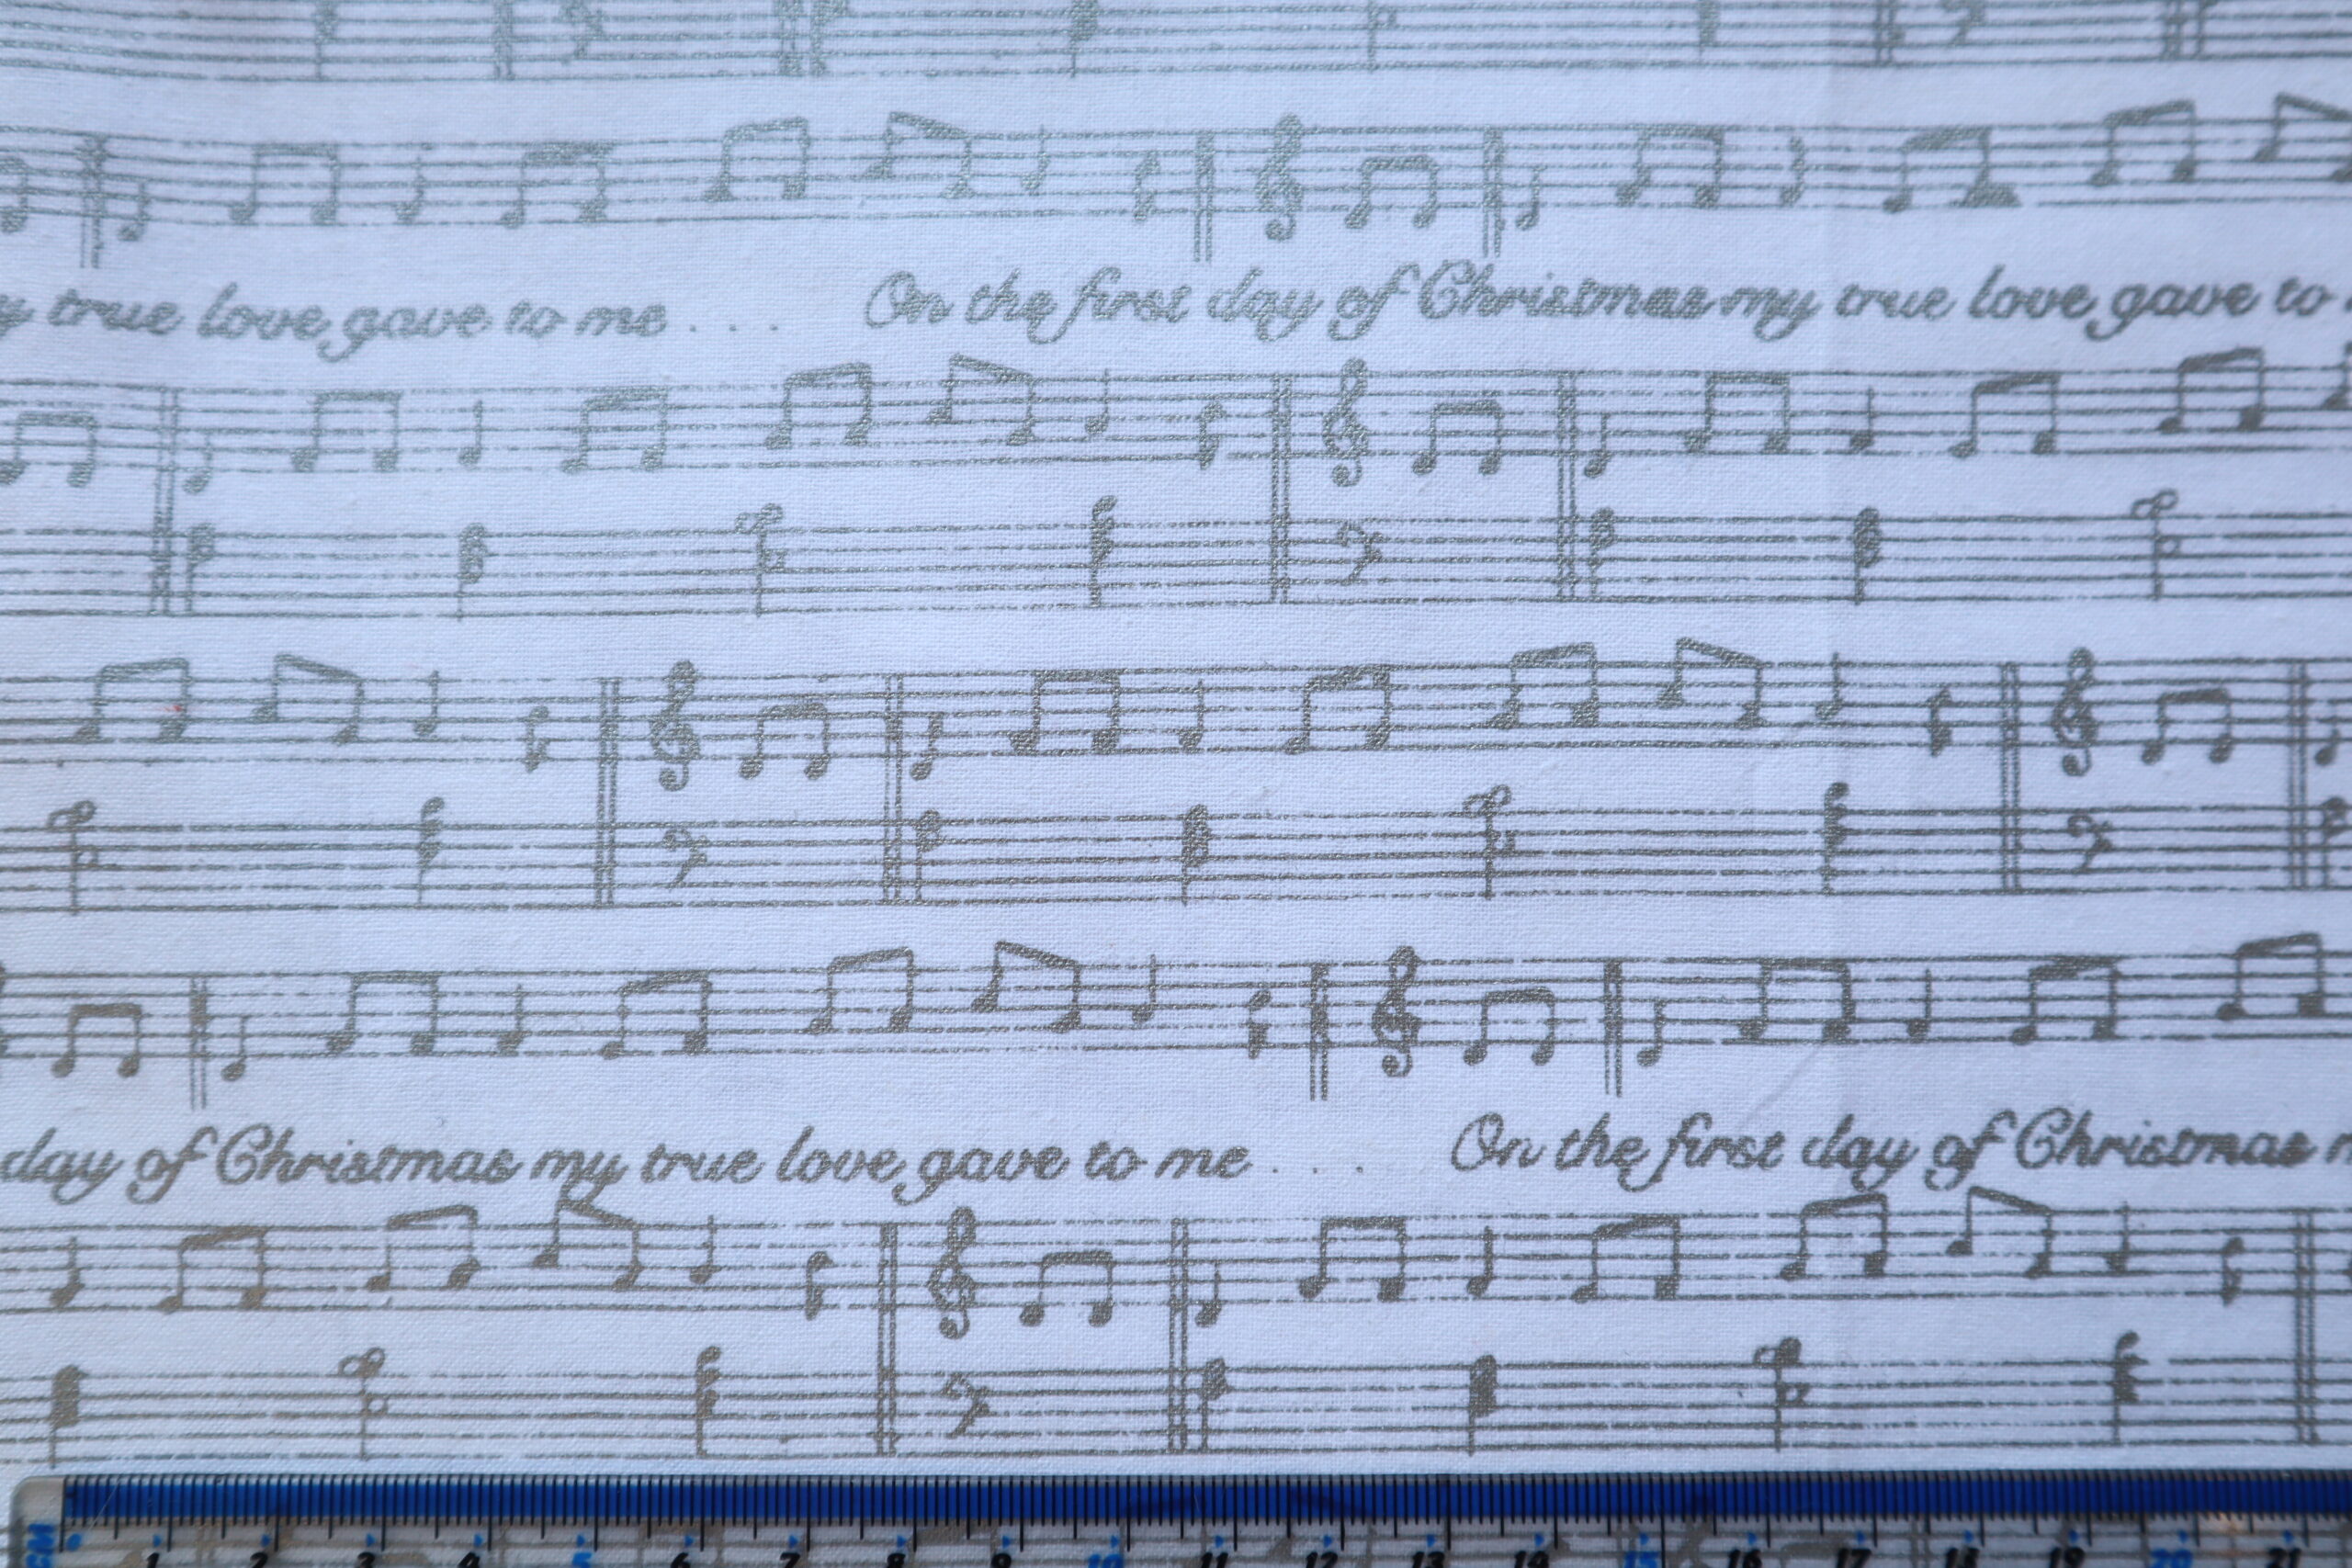 y true love gave to me . . . . On the first day of Christmas my true love gave to
day of Christmas my true love gave to me . . . . On the first day of Christmas m
CM 0 1 2 3 4 5 6 7 8 9 10 11 12 13 14 15 16 17 18 19 20 21